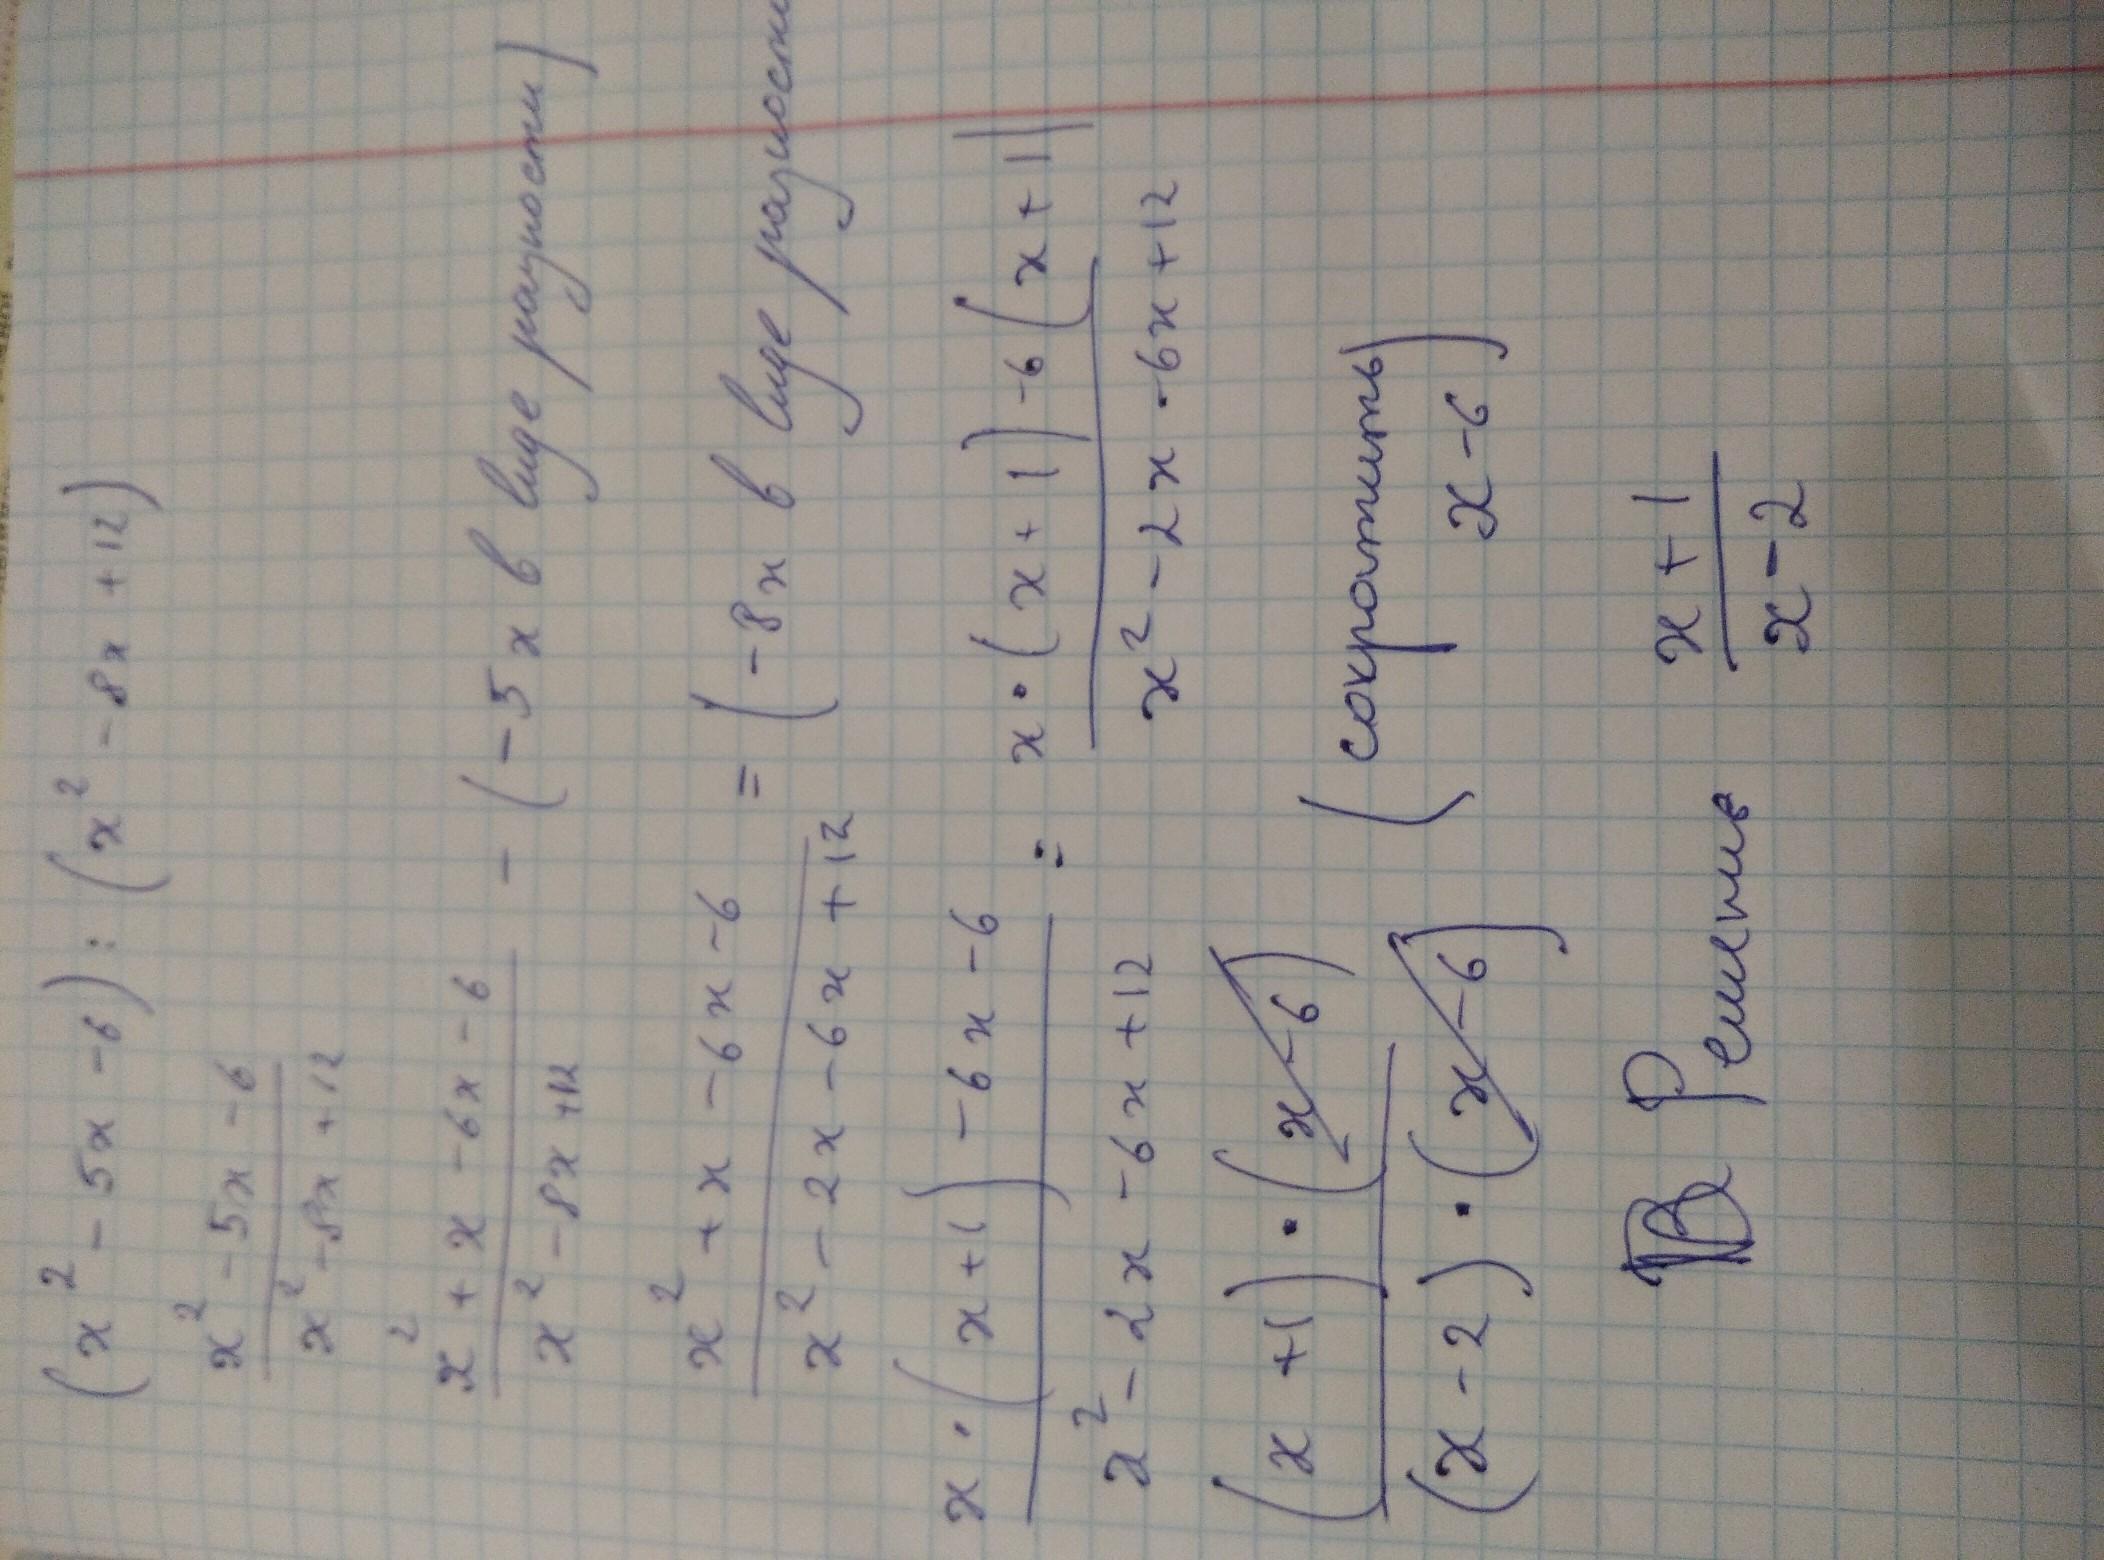 (x² - 5x - 6) : (x² - 8x + 12)
x² - 5x - 6
x² - 8x + 12
x² + x - 6x - 6
x² - 8x + 12
- (-5x в виде разности)
x² + x - 6x - 6
x² - 2x - 6x + 12
= (-8x в виде разности
x · (x + 1) - 6x - 6
x² - 2x - 6x + 12
=
x · (x + 1) - 6 (x + 1)
x² - 2x - 6x + 12
(x + 1) · (x - 6)
(x - 2) · (x - 6)
(сократить
x - 6)
Решение
x + 1
x - 2